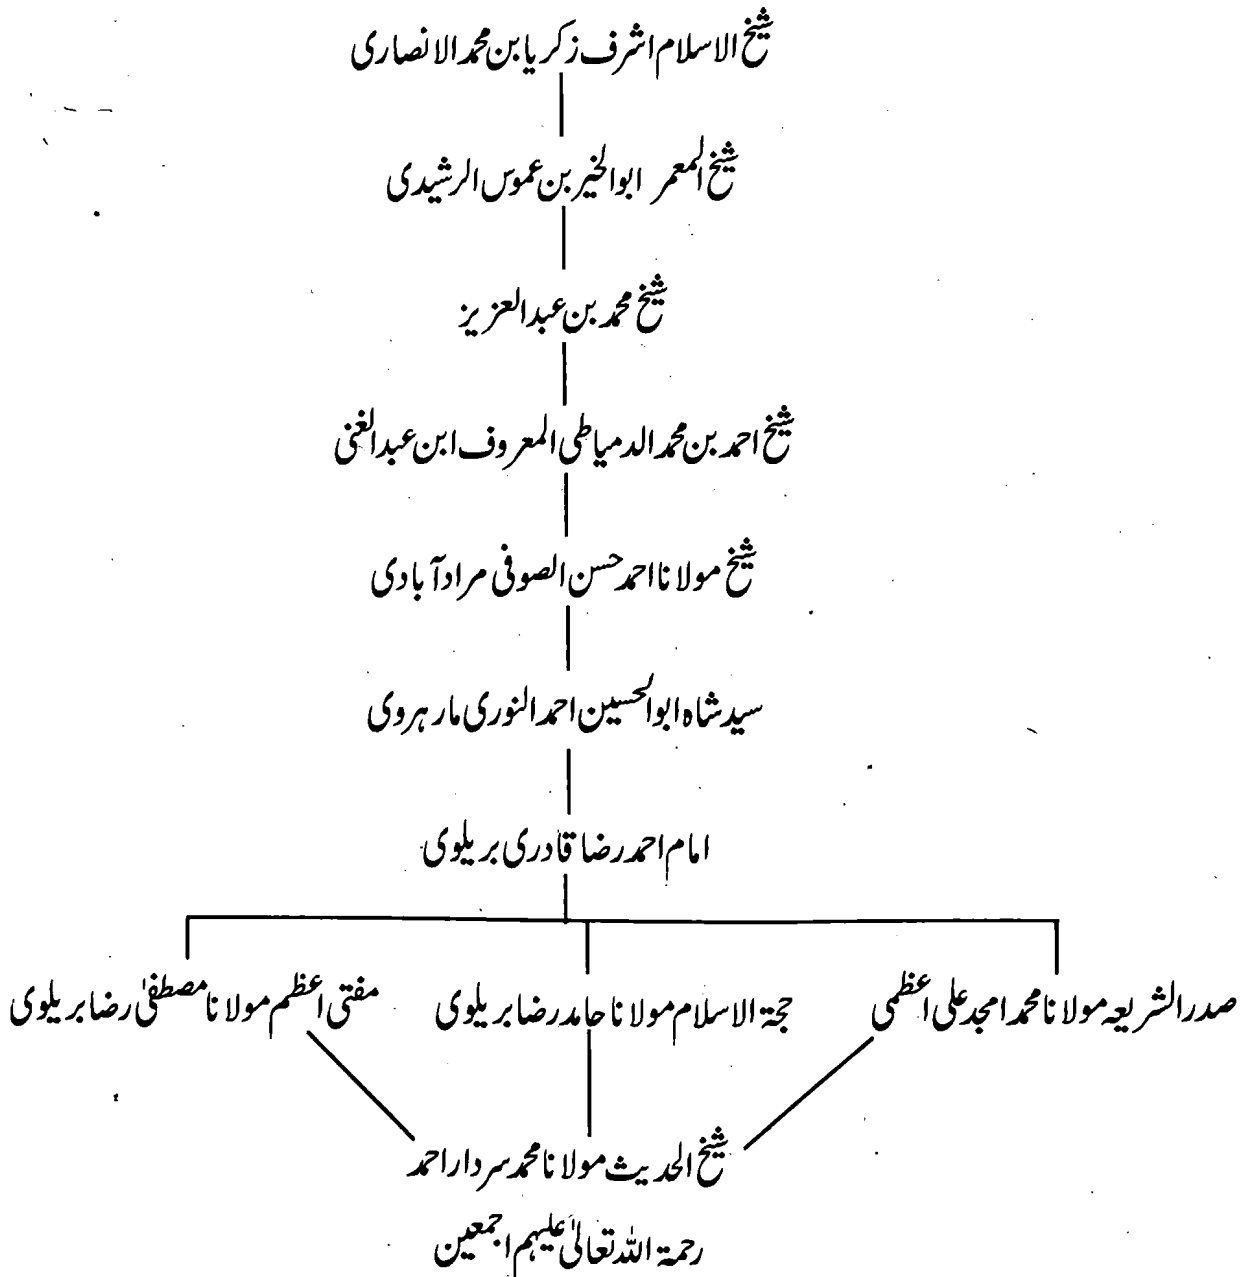 شیخ الاسلام اشرف زکریا بن محمد الانصاری
شیخ المعمر ابوالخیر بن عموس الرشیدی
شیخ محمد بن عبدالعزیز
شیخ احمد بن محمد الدمیاطی المعروف ابن عبدالغنی
شیخ مولانا احمد حسن الصوفی مرادآبادی
سید شاہ ابوالحسین احمد النوری مارہروی
امام احمد رضا قادری بریلوی
صدرالشریعہ مولانا محمد امجد علی اعظمی حجۃ الاسلام مولانا حامد رضا بریلوی مفتی اعظم مولانا مصطفیٰ رضا بریلوی
شیخ الحدیث مولانا محمد سردار احمد
رحمۃ اللہ تعالیٰ علیہم اجمعین